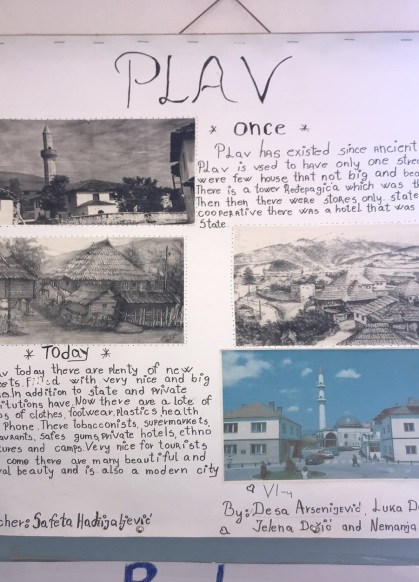 PLAV
* once *
PLav has existed since ancient
PLav is used to have only one stree
were few house that not big and bea
There is a tower Redepagića which was th
Then then there were stores only. state
cooperative there was a hotel that was
State
* Today *
av today there are plenty of new
eets. filled with very nice and big
In addition to state and private
titutions have. Now there are a lote of
ps of clothes, footwear, plastics health
Phone. There tobacconists, supermarkets,
aurants, safes gums, private hotels, ethno
tures and camps. Very nice for tourists
come there are many beautiful and
ral beauty and is also a modern city
cher: Safeta Hadžijaljević
VI-4
By: Desa Arsenijević, Luka D
Jelena Dožić and Nemanja